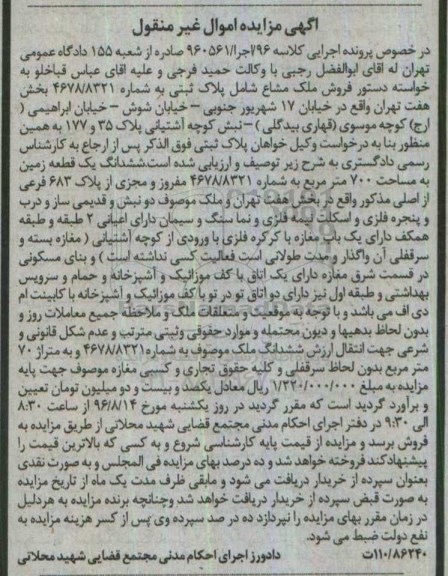 آگهی مزایده اموال غیر منقول
در خصوص پرونده اجرایی کلاسه ۹۶/اجرا/۹۶۰۵۶۱ صادره از شعبه ۱۵۵ دادگاه عمومی
تهران له آقای ابوالفضل رجبی با وکالت حمید فرجی و علیه آقای عباس قباخلو به
خواسته دستور فروش ملک مشاع شامل پلاک ثبتی به شماره ۴۶۷۸/۸۳۲۱ بخش
هفت تهران واقع در خیابان ۱۷ شهریور جنوبی – خیابان شوش – خیابان ابراهیمی (
ارج) کوچه موسوی (قهاری بیدگلی ) – نبش کوچه آشتیانی پلاک ۳۵ و ۱۷۷ به همین
منظور بنا به درخواست وکیل خواهان پلاک ثبتی فوق الذکر پس از ارجاع به کارشناس
رسمی دادگستری به شرح زیر توصیف و ارزیابی شده است.ششدانگ یک قطعه زمین
به مساحت ۷۰۰ متر مربع به شماره ۴۶۷۸/۸۳۲۱ مفروز و مجزی از پلاک ۶۸۳ فرعی
از اصلی مذکور واقع در بخش هفت تهران و ملک موصوف دو نبش و قدیمی ساز و درب
و پنجره فلزی و اسکلت نیمه فلزی و نما سنگ و سیمان دارای اعیانی ۲ طبقه و طبقه
همکف دارای یک باب مغازه با کرکره فلزی با ورودی از کوچه آشتیانی ( مغازه بسته و
سرقفلی آن واگذار و مدت طولانی است فعالیت کسی نداشته است ) و بنای مسکونی
در قسمت شرق مغازه دارای یک اتاق با کف موزائیک و آشپزخانه و حمام و سرویس
بهداشتی و طبقه اول نیز دارای دو اتاق تو در تو با کف موزائیک و آشپزخانه با کابینت ام
دی اف می باشد و با توجه به موقعیت و متعلقات ملک و ملاحظه جمیع معاملات روز و
بدون لحاظ بدهیها و دیون محتمله و موارد حقوقی وثبتی مترتب و عدم شکل قانونی و
شرعی جهت انتقال ارزش ششدانگ ملک موصوف به شماره ۴۶۷۸/۸۳۲۱ و به متراژ ۷۰
متر مربع بدون لحاظ سرقفلی و کلیه حقوق تجاری و کسبی مغازه موصوف جهت پایه
مزایده به مبلغ ۱/۲۲۰/۰۰۰/۰۰۰ ریال معادل یکصد و بیست و دو میلیون تومان تعیین
و برآورد گردید است که مقرر گردید در روز یکشنبه مورخ ۹۶/۸/۱۴ از ساعت ۸:۳۰
الی ۹:۳۰ در دفتر اجرای احکام مدنی مجتمع قضایی شهید محلاتی از طریق مزایده به
فروش برسد و مزایده از قیمت پایه کارشناسی شروع و به کسی که بالاترین قیمت را
پیشنهاد کند فروخته خواهد شد و ده درصد بهای مزایده فی المجلس و به صورت نقدی
بعنوان سپرده از خریدار دریافت می شود و مابقی ظرف مدت یک ماه از تاریخ مزایده
به صورت قبض سپرده از خریدار دریافت خواهد شد وچنانچه برنده مزایده به هردلیل
در زمان مقرر بهای مزایده را نپردازد ده در صد سپرده وی پس از کسر هزینه مزایده به
نفع دولت ضبط می شود.
۱۱۰/۸۶۲۴۰ت دادورز اجرای احکام مدنی مجتمع قضایی شهید محلاتی